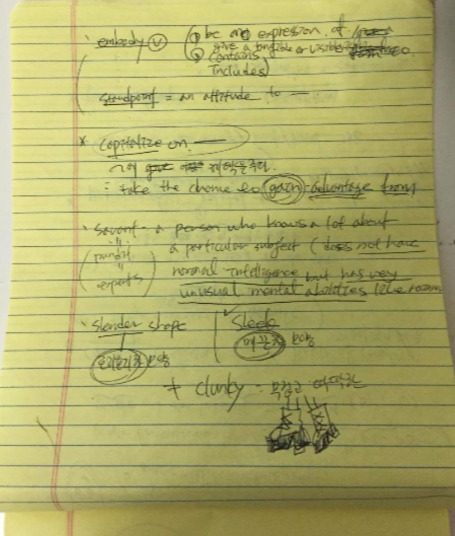 embody (v) ① be an expression of
give a tangible or visible
② contains
includes)
standpoint = an attitude to —
* Capitalize on —
: take the chance to gain advantage from
savant - a person who knows a lot about
pundit
a particular subject (does not have
"
experts
normal intelligence but has very
unusual mental abilities
slender shape
Sleek
매끈한 모양
+ clunky =